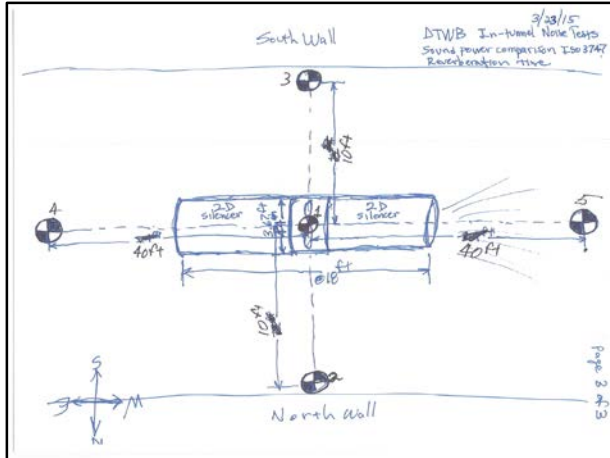 3/23/15
DTWB In-tunnel Noise Tests
Sound power comparison ISO 3747
Reverberation time
South Wall
3
10ft
2D
silencer
1
2D
silencer
4
5
40ft
40ft
@18 ft
10ft
2
S
N
North Wall
Page 3 of 3